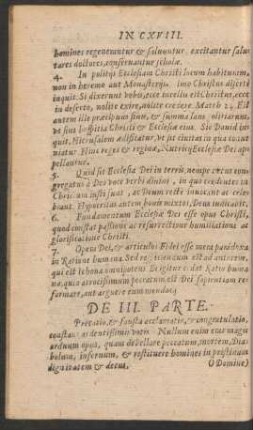 IN CXVIII.
homines regenerentur & salventur. excitantur salu
tares doctores, conservantur scholæ.
4. In politijs Ecclesiam Christi locum habiturem,
non in heremo aut Monasterijs. imo Christus diserté
inquit: Si dixerint vobis, ecce
in deserto, nolite exire, nolite credere. Matth 24. Est
autem illa præcipuus finis, & summa laus, civitatum,
ut sint hospitia Christi & Ecclesiæ eius. Sic David in-
quit. Hierusalem ædificatur, ut sit civitas
Hinc reges & reginæ, Nutritij Ecclesiæ Dei ap-
pellantur.
5. Quid sit Ecclesia Dei in terris, nempe cœtus con-
gregatus à Deo voce verbi divini, in quo
sunt, ac Deum recté invocant ac cele-
brant. Hypocritas autem mixtos, Deus indicavit.
6. Fundamentum Ecclesiæ Dei esse opus Christi,
quod constat passione ac resurrectione humiliatione ac
glorificatione Christi.
7. Opera Dei, & articulos Fidei esse mera paradoxa
in Ratione humana. Sed respiciendum est ad autorem,
qui est Iehova omnipotens. Erigitur det Ratio huma-
na, quia atrocissimum peccatum est Dei sapientiam re-
formare, aut arguere eum mendacij
DE III. PARTE.
Precatio, & fausta acclamatio, & congratulatio,
constat ardentissimis votis. Nullum enim est magis
arduum opus, quam debellare peccatum, mortem, Dia-
bolum, infernum, & restituere homines in pristinam
dignitatem & decus.
O Domine)